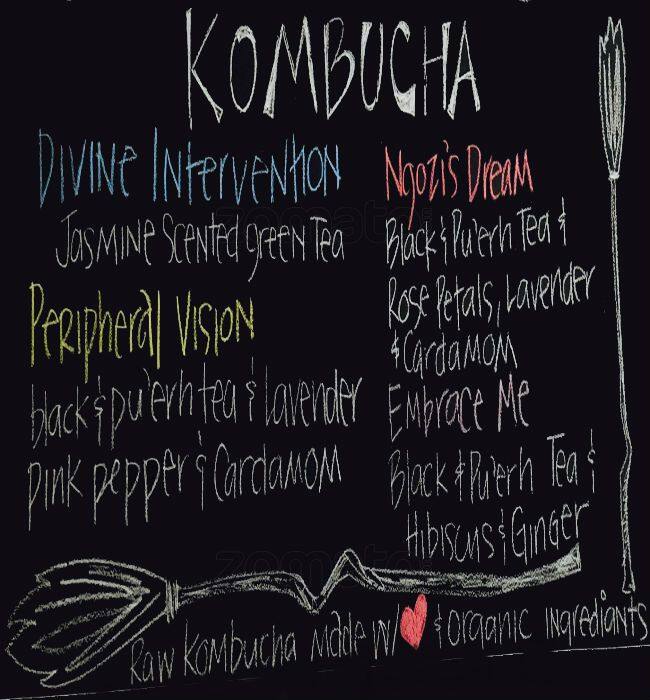 KOMBUCHA
DIVINE INTERVENTION
JASMINE SCENTED GREEN TEA
PERIPHERAL VISION
black & pu'erh tea & lavender
pink pepper & Cardamom
Ngozi's Dream
Black & Pu'erh Tea &
Rose Petals, Lavender
& Cardamom
Embrace Me
Black & Pu'erh Tea &
Hibiscus & Ginger
Raw Kombucha made w/ ♥ & organic ingrediants
zomato
zomato